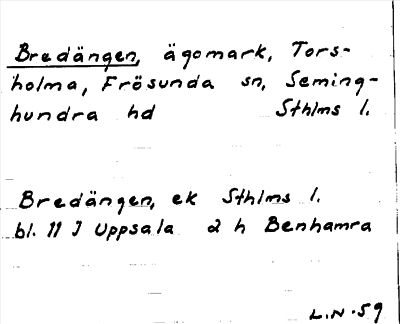 Bredängen, ägomark, Tors-
holma, Frösunda sn, Seming-
hundra hd Sthlms l.
Bredängen, ek Sthlms l.
bl. 11 J Uppsala 2 h Benhamra
L.N. 59